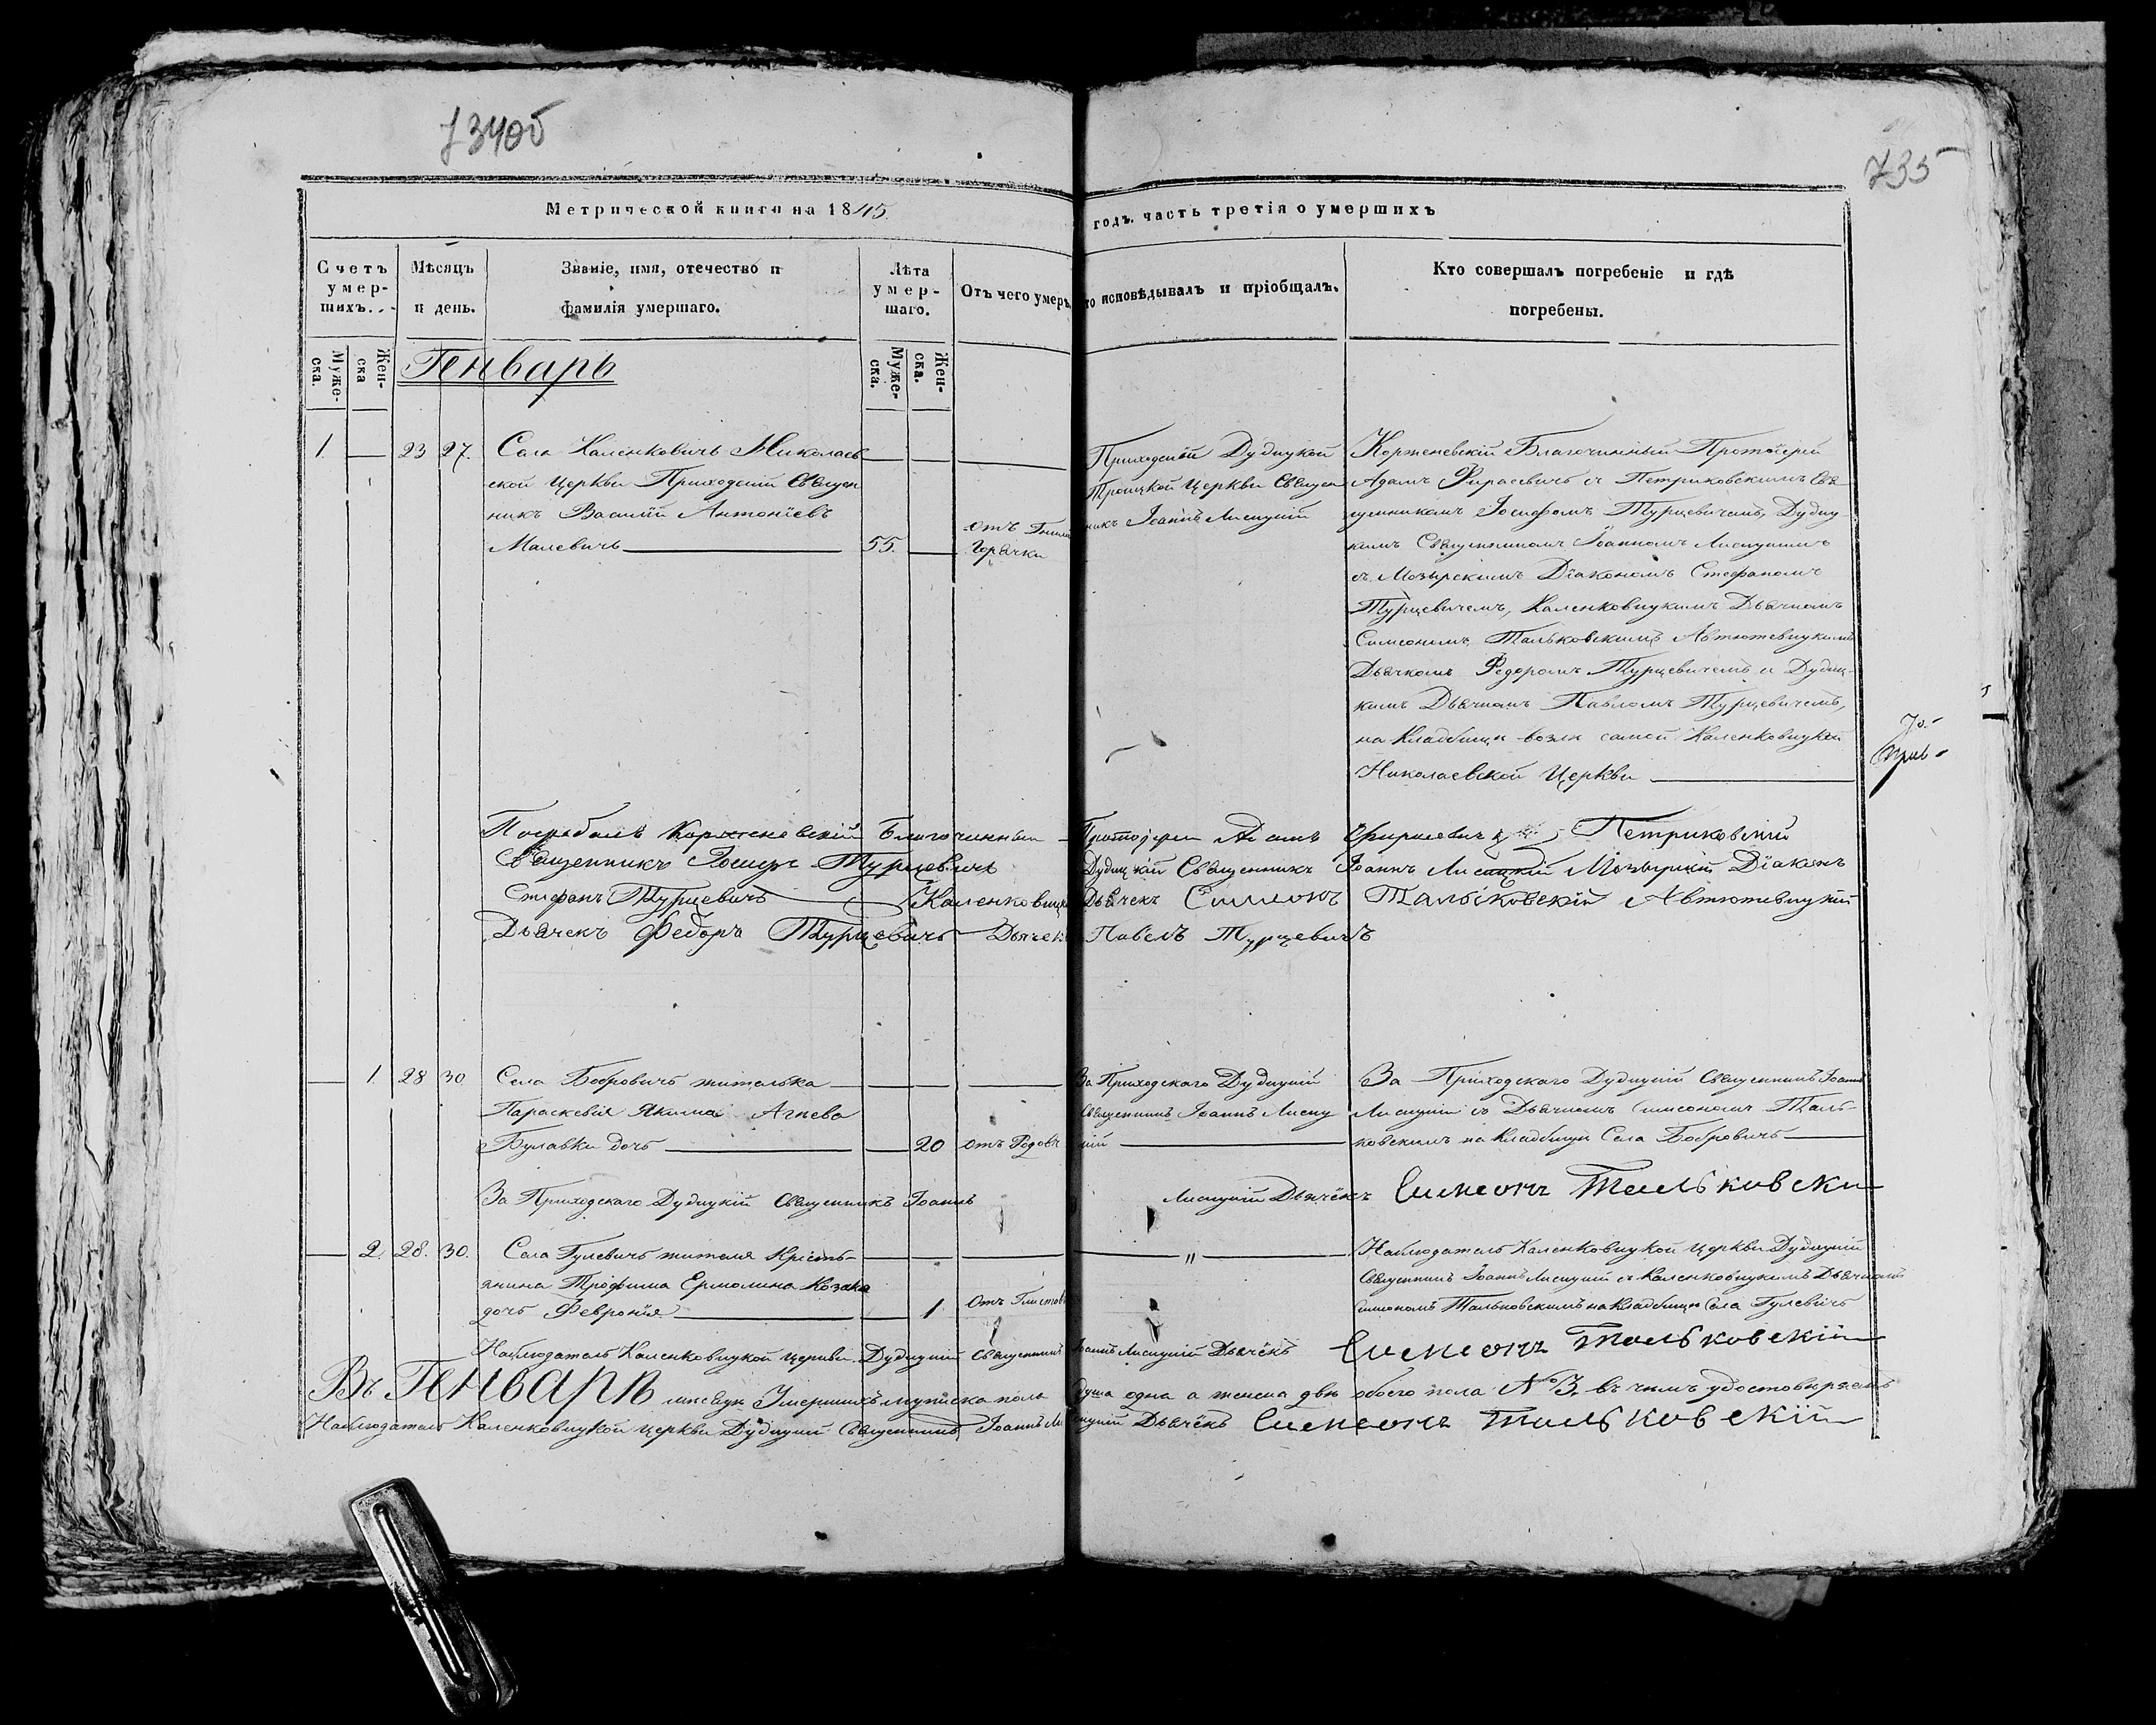 734об
735
Метрической книги на 1845
годъ. часть третія о умершихъ
Счетъ умер-шихъ.
Мѣсяцъ и день.
Званіе, имя, отечество и фамилія умершаго.
Лѣта умер-шаго.
Отъ чего умеръ.
то исповѣдывалъ и пріобщалъ.
Кто совершалъ погребеніе и гдѣ погребены.
Муже-ска.
Жен-ска
Муже-ска.
Жен-ска.
Генварь
1 — 23 27.
Села Каленковичъ Николаев
ской Церкви Приходскій Священ
никъ Василій Антоніевъ
Малевичъ — 55. —
отъ Гнилой
Горячки
Приходскій Дудицкой
Троицкой Церкви Священ
никъ Іоаннъ Лисицкій
Корженевскій Благочинный Протоіерей
Адамъ Фирасевичъ съ Петриковскимъ Свя
щенникомъ Іосифомъ Турцевичемъ, Дудиц
кимъ Священникомъ Іоанномъ Лисицкимъ
съ Мозырскимъ Діакономъ Стефаномъ
Турцевичемъ, Каленковицкимъ Дьячкомъ
Симеономъ Тальковскимъ Автютевицкимъ
Дьячкомъ Федоромъ Турцевичемъ и Дудиц-
кимъ Дьячкомъ Павломъ Турцевичемъ,
на Кладбищи возли самой Каленковицкой
Николаевской Церкви
Погребалъ Корженевскій Благочинный Протоіерей Адамъ Фирасевичъ Петриковскій
Священникъ Іосифъ Турцевичъ Дудицкій Священникъ Іоаннъ Лисицкій Мозырскій Діаконъ
Стефанъ Турцевичъ Каленковицкій Дьячекъ Симеонъ Тальковскій Автютевицкій
Дьячекъ Федоръ Турцевичъ Дьячекъ Павелъ Турцевичъ
— 1. 28 30
Села Бобровичъ жителька
Параскевія Якима Агнева
Булавки дочь — 20
отъ Родовъ
За Приходскаго Дудицкій
Священникъ Іоаннъ Лисиц
кій
За Приходскаго Дудицкій Священникъ Іоаннъ
Лисицкій съ Дьячкомъ Симеономъ Таль-
ковскимъ на Кладбищи Села Бобровичъ
За Приходскаго Дудицкій Священникъ Іоаннъ Лисицкій Дьячёкъ Симеонъ Тальковски
— 2. 28. 30.
Села Гулевичъ жителя Крестъ-
янина Трофима Ермолина Козака
дочь Февронія — 1
Отъ Глистовъ
— " —
Наблюдатель Каленковицкой Церкви Дудицкій
Священникъ Іоаннъ Лисицкій съ Каленковицкимъ Дьячкомъ
Симеономъ Тальковскимъ на Кладбищи Села Гулевичъ
Наблюдатель Каленковицкой Церкви Дудицкій Священникъ Іоаннъ Лисицкій Дьячёкъ Симеонъ Тальковскій
Въ Генварѣ месецѣ Умершихъ мужеска пола душа одна а женска двѣ обоего пола №3. въ чемъ удостовѣряемъ
Наблюдатель Каленковицкой Церкви Дудицкій Священникъ Іоаннъ Лисицкій Дьячёкъ Симеонъ Тальковскій